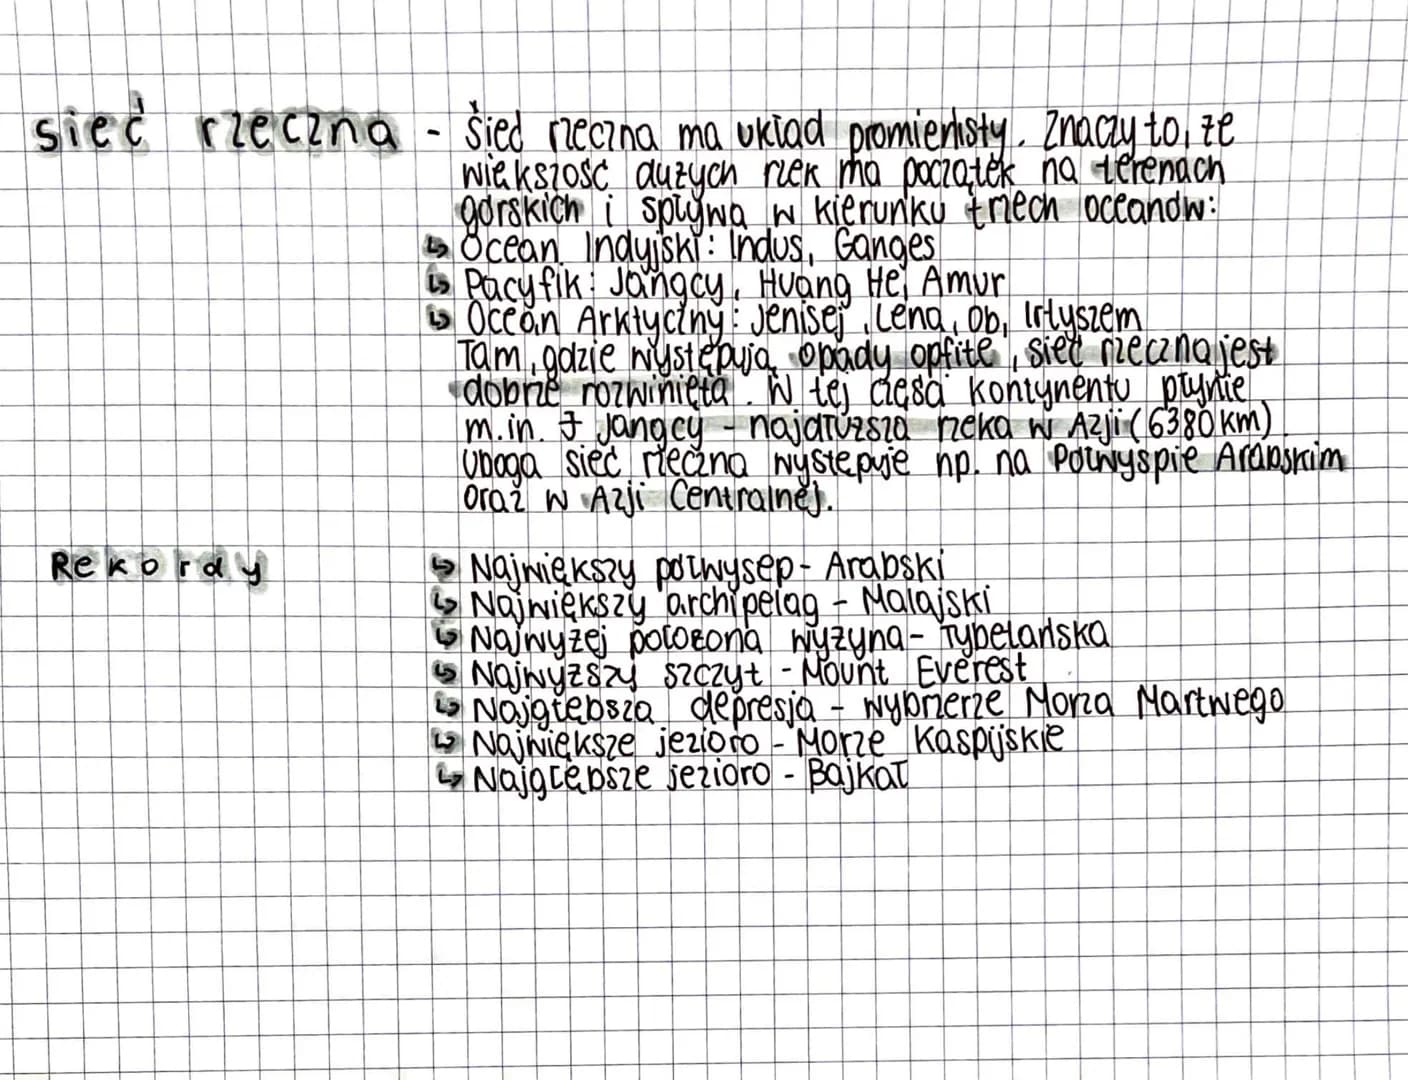 sieć rzeczna - Sieć rzeczna ma układ promienisty. Znaczy to, że
większość dużych rzek ma początek na terenach
górskich i spływa w kierunku trzech oceanów:
↳ Ocean Indyjski: Indus, Ganges
↳ Pacyfik: Jangcy, Huang He, Amur
↳ Ocean Arktyczny: Jenisej, Lena, Ob, Irtyszem
Tam, gdzie występują opady obfite, sieć rzeczna jest
dobrze rozwinięta. W tej części kontynentu płynie
m.in. Jangcy - najdłuższa rzeka w Azji (6380km)
Uboga sieć rzeczna występuje np. na Półwyspie Arabskim
oraz w Azji Centralnej.
Rekordy ↳ Największy półwysep - Arabski
↳ Największy archipelag - Malajski
↳ Najwyżej położona wyżyna - Tybetańska
↳ Najwyższy szczyt - Mount Everest
↳ Najgłębsza depresja - wybrzerze Morza Martwego
↳ Największe jezioro - Morze Kaspijskie
↳ Najgłębsze jezioro - Bajkał